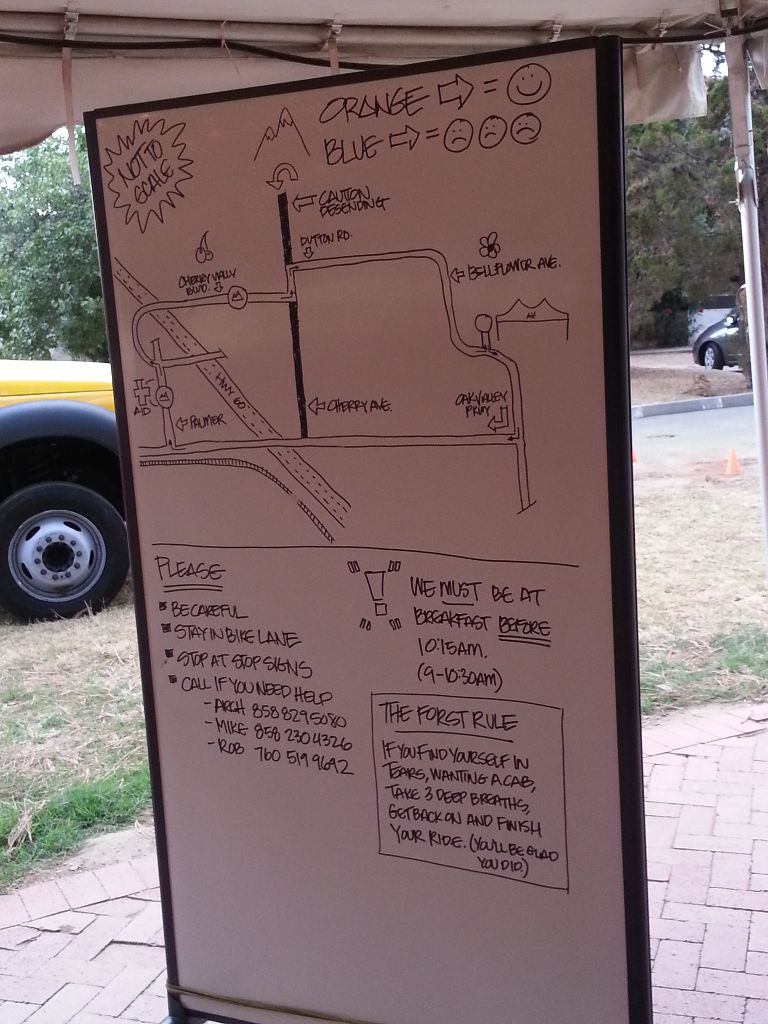 NOT TO
SCALE
ORANGE ⇨ = ☺
BLUE ⇨ = ☹ ☹ ☹
CAUTION
DESENDING
DUTTON RD.
BELLFLOWER AVE.
CHERRY VALLY
BLVD.
HWY 60
AID
PALMER
CHERRY AVE.
OAK VALLEY
PKWY
PLEASE
BE CAREFUL
STAY IN BIKE LANE
STOP AT STOP SIGNS
CALL IF YOU NEED HELP
- ARCH 858 829 5080
- MIKE 858 230 4326
- ROB 760 519 9692
WE MUST BE AT
BREAKFAST BEFORE
10:15AM.
(9-10:30AM)
THE FORST RULE
IF YOU FIND YOURSELF IN
TEARS, WANTING A CAB,
TAKE 3 DEEP BREATHS,
GET BACK ON AND FINISH
YOUR RIDE. (YOU'LL BE GLAD
YOU DID.)